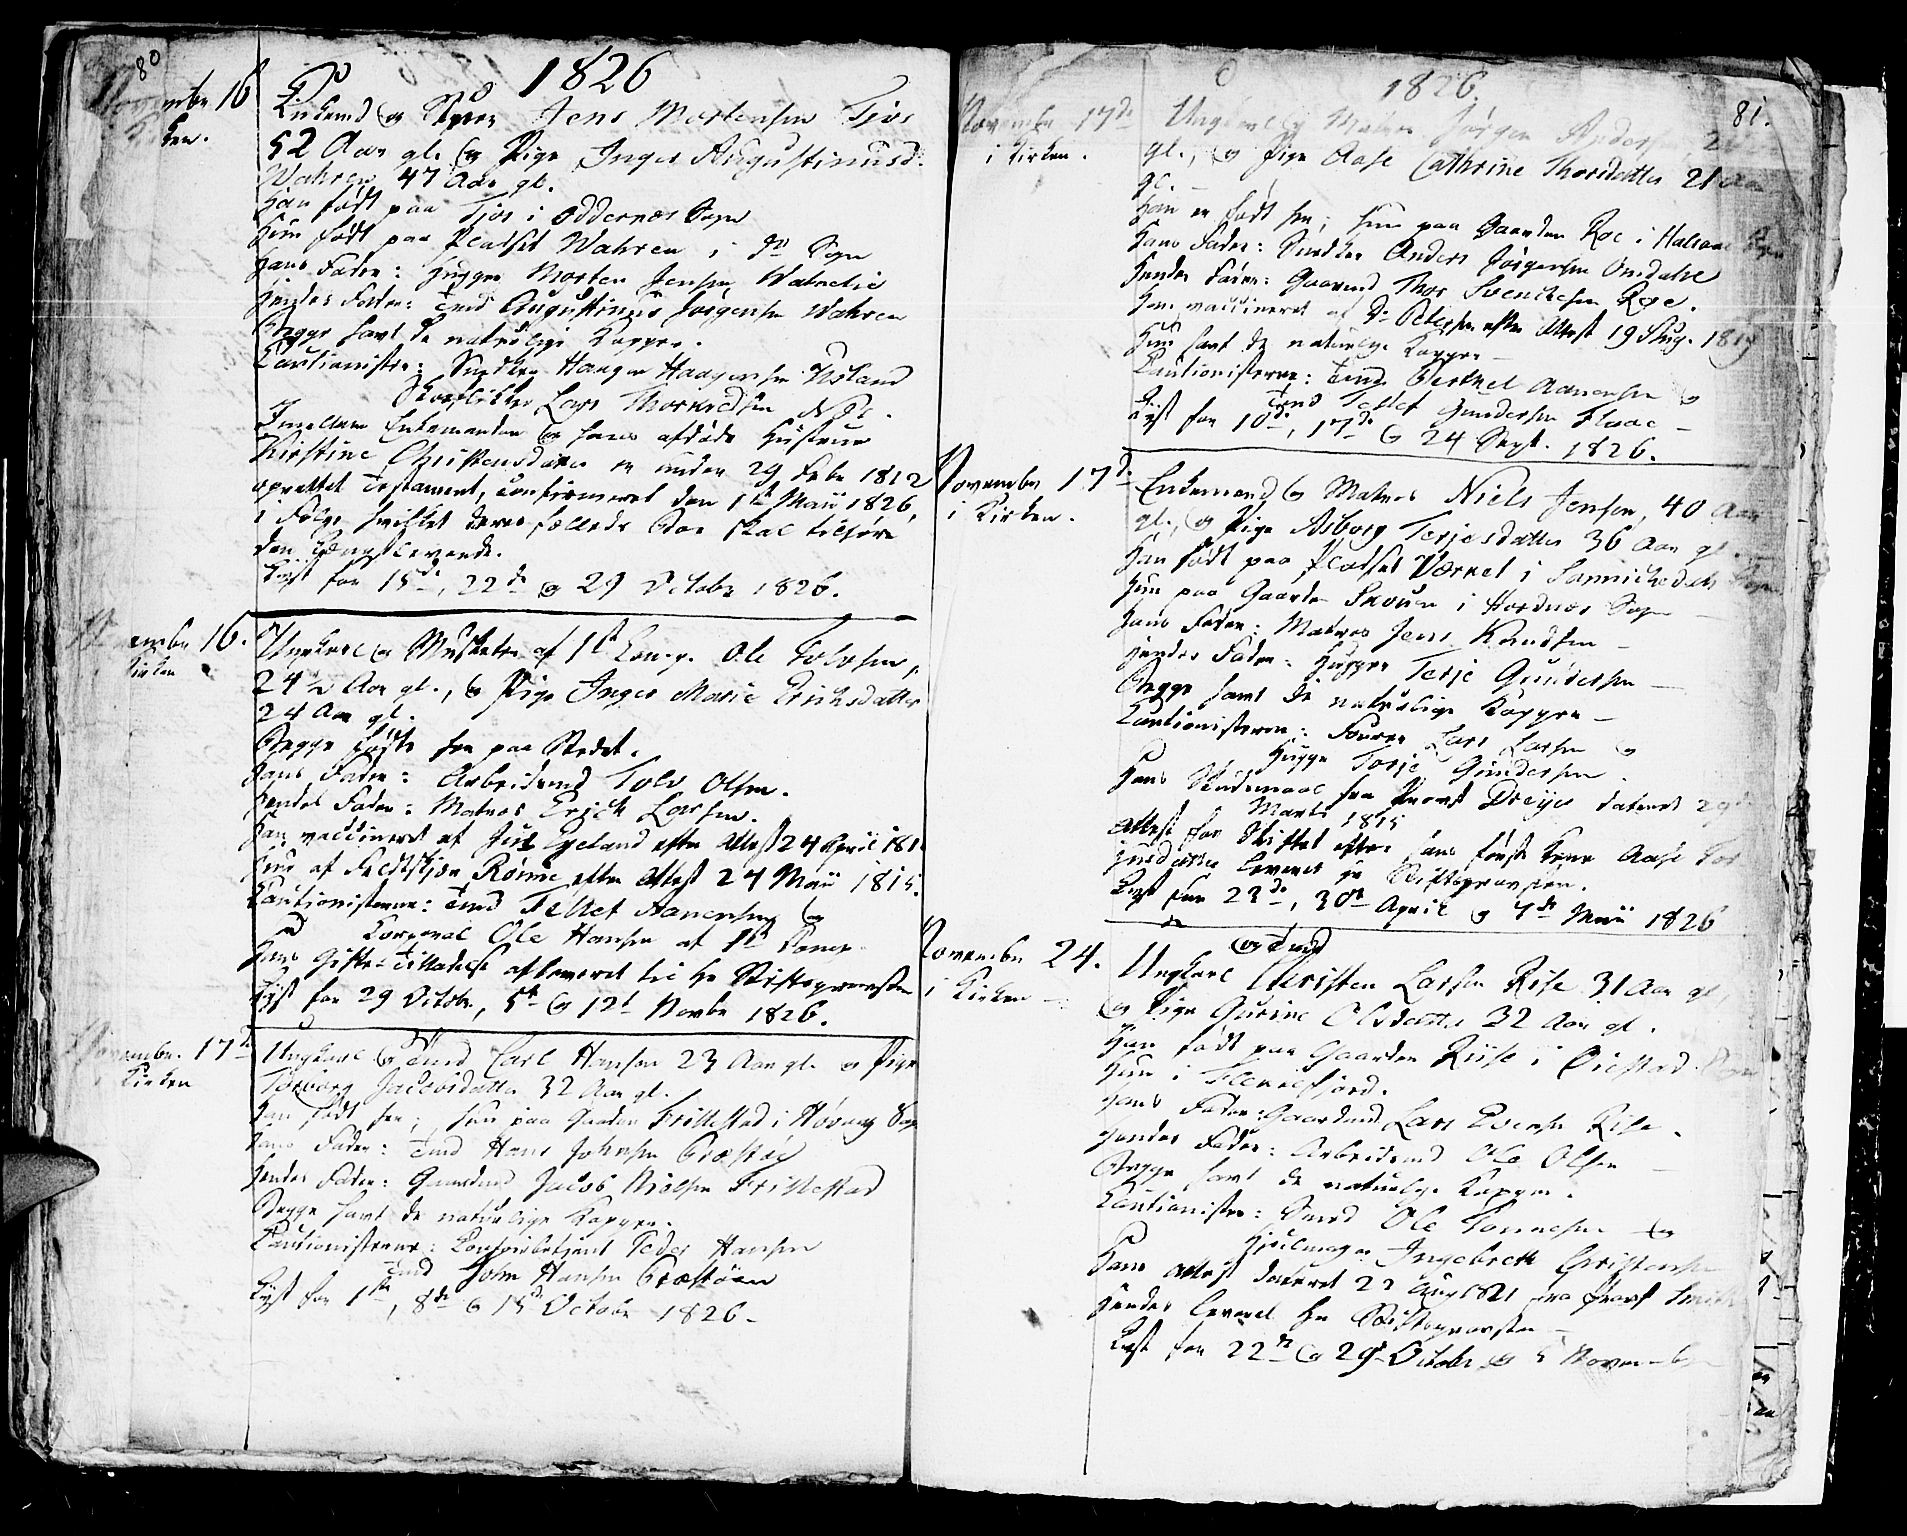 80
1826
November 16
i Kirken.
Enkemd og Skipper Jens Mortensen Tjos
52 Aar gl. og Pige Inger Augustinusd.
Wahren 47 Aar gl.
Han født paa Tjos i Oddernæs Sogn
Hun født paa Pladset Wahren i do Sogn
Hans Fader: Huggr Morten Jensen
Hendes Fader: Tmd Augustinus Jørgensen Wahren
Begge havt de naturlige Kopper.
Cautionister: Snedker Haagen Haagensen Usland
Lars Thorkedsen
Imellem Enkemanden og hans afdøde Hustrue
Kirstine Christensdatter er under 29 Febr 1812
oprettet Testament, confirmeret den 1st Maii 1826,
i Følge hvilket deres fælleds Boe skal tilhøre
den Længstlevende.
Lyst for 15de, 22de og 29 Octobr 1826.
November 16.
i Kirken
Ungkarl og Musketr af 1st Comp. Ole Tolvsen,
24½ Aar gl., og Pige Inger Marie Erichsdatter
24 Aar gl.
Begge fødte her paa Stedet.
Hans Fader: Arbeidsmd Tolv Olsen.
Hendes Fader: Matros Erich Larsen.
Han vaccineret af Jens Egeland efter Attest 24 April 181
Hun af Feldtskjær Rønne efter Attest 24 Maii 1815.
Cautionisterne: Tmd Tellef Aanensen og
Korporal Ole Hansen af 1st Comp.
Hans Gifte-Tilladelse afleveret til Hr Stiftsprovsten
Lyst for 29 Octobr, 5te og 12te Novbr 1826.
November 17de
i Kirken
Ungkarl og Tmd Carl Hansen 23 Aar gl. og Pige
Torborg Jacobsdatter 32 Aar gl.
Han født her, hun paa Gaarden Fristestad i Høvaag Sogn
Hans Fader: Tmd Hans Johnsen Græsøe
Hendes Fader: Gaardmd Jacob Nielsen Fristestad
Begge havt de naturlige Kopper.
Cautionisterne: Peder Hansen
Tmd John Hansen Græsøen
Lyst for 1ste, 8de og 15de Octobr 1826.
1826.
81.
November 17de
i Kirken.
Ungkarl og Matros Jørgen Anders
gl., og Pige Aase Cathrine Thorsdatter 21 Aar
gl.
Han er født her, hun paa Gaarden Roe i Halsaae Sogn
Hans Fader: Snedker Anders Jørgensen Omdahl
Hendes Fader: Gaarmd Thor Svenchesen Roe.
Han vaccineret af Dr Petersen efter Attest 19 Aug. 1819
Hun havt de naturlige Kopper
Cautionisterne: Tmd Berthel Aanensen og
Tmd Tellef Gundersen Flaae
Lyst for 10de, 17de og 24 Sept. 1826.
November 17de
i Kirken.
Enkemand og Matros Niels Jensen, 40 Aar
gl., og Pige Asborg Terjesdatter 36 Aar gl.
Han født paa Pladset Værket i Sannickedals Sogn
Hun paa Gaarden Skouen i Hordnæs Sogn
Hans Fader: Matros Jens Knudsen
Hendes Fader: Huggr Terje Gundersen
Begge havt de naturlige Kopper
Cautionisterne: Lars Larsen og
Huggr Torje Gundersen.
Hans Skudsmaal fra Provst Dreyer dateret 29de
Marts 1815
Attest for Skiftet efter hans første Kone Aase Tor
jusdatter leveret Hr Stiftsprovsten.
Lyst for 23de, 30te April og 7de Maii 1826
November 24.
i Kirken
og Tmd
Ungkarl Christen Larsen Rise 31 Aar gl,
og Pige Gurine Olsdatter 32 Aar gl.
Han født paa Gaarden Riise i Øiestad Sogn
Hun i Flekkefjord.
Hans Fader: Gaardmd Lars Evensen Rise.
Hendes Fader: Arbeidsmd Ole Olsen
Begge havt de naturlige Kopper.
Cautionister: Smed Ole Tønnesen og
Hjulmager Ingebreth Christensen
Hans Attest dateret 22 Aug 1821 fra Provst Smith
Hendes leveret Hr Stiftsprovsten
Lyst for 22de og 29de Octobr og 5 November